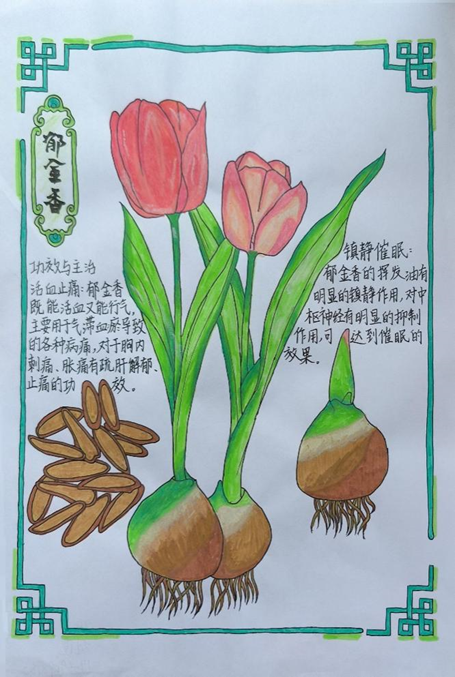 郁金香
功效与主治
活血止痛:郁金香
既能活血又能行气,
主要用于气滞血瘀导致
的各种病痛,对于胸内
刺痛、胀痛有疏肝解郁、
止痛的功 效。
镇静催眠:
郁金香的挥发油有
明显的镇静作用,对中
枢神经有明显的抑制
作用,可 达到催眠的
效果。